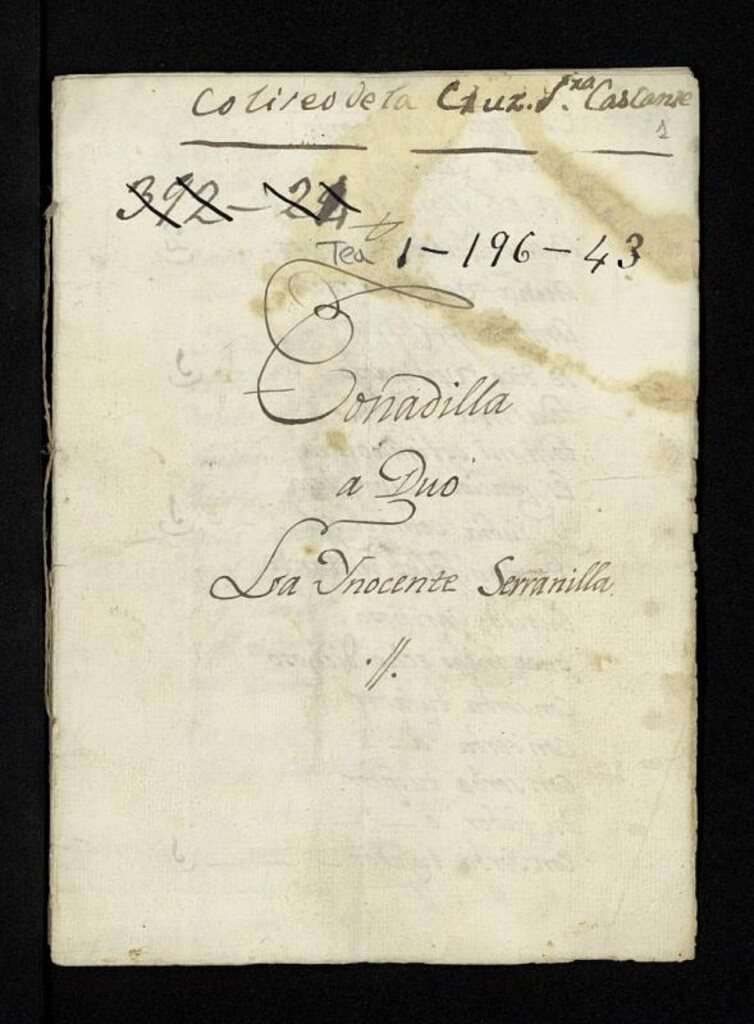 Coliseo de la Cruz. S.ra Cascante
1
392 - 24
Tea 1 - 196 - 43
Tonadilla
a Duo
La Ynocente Serranilla
.//.